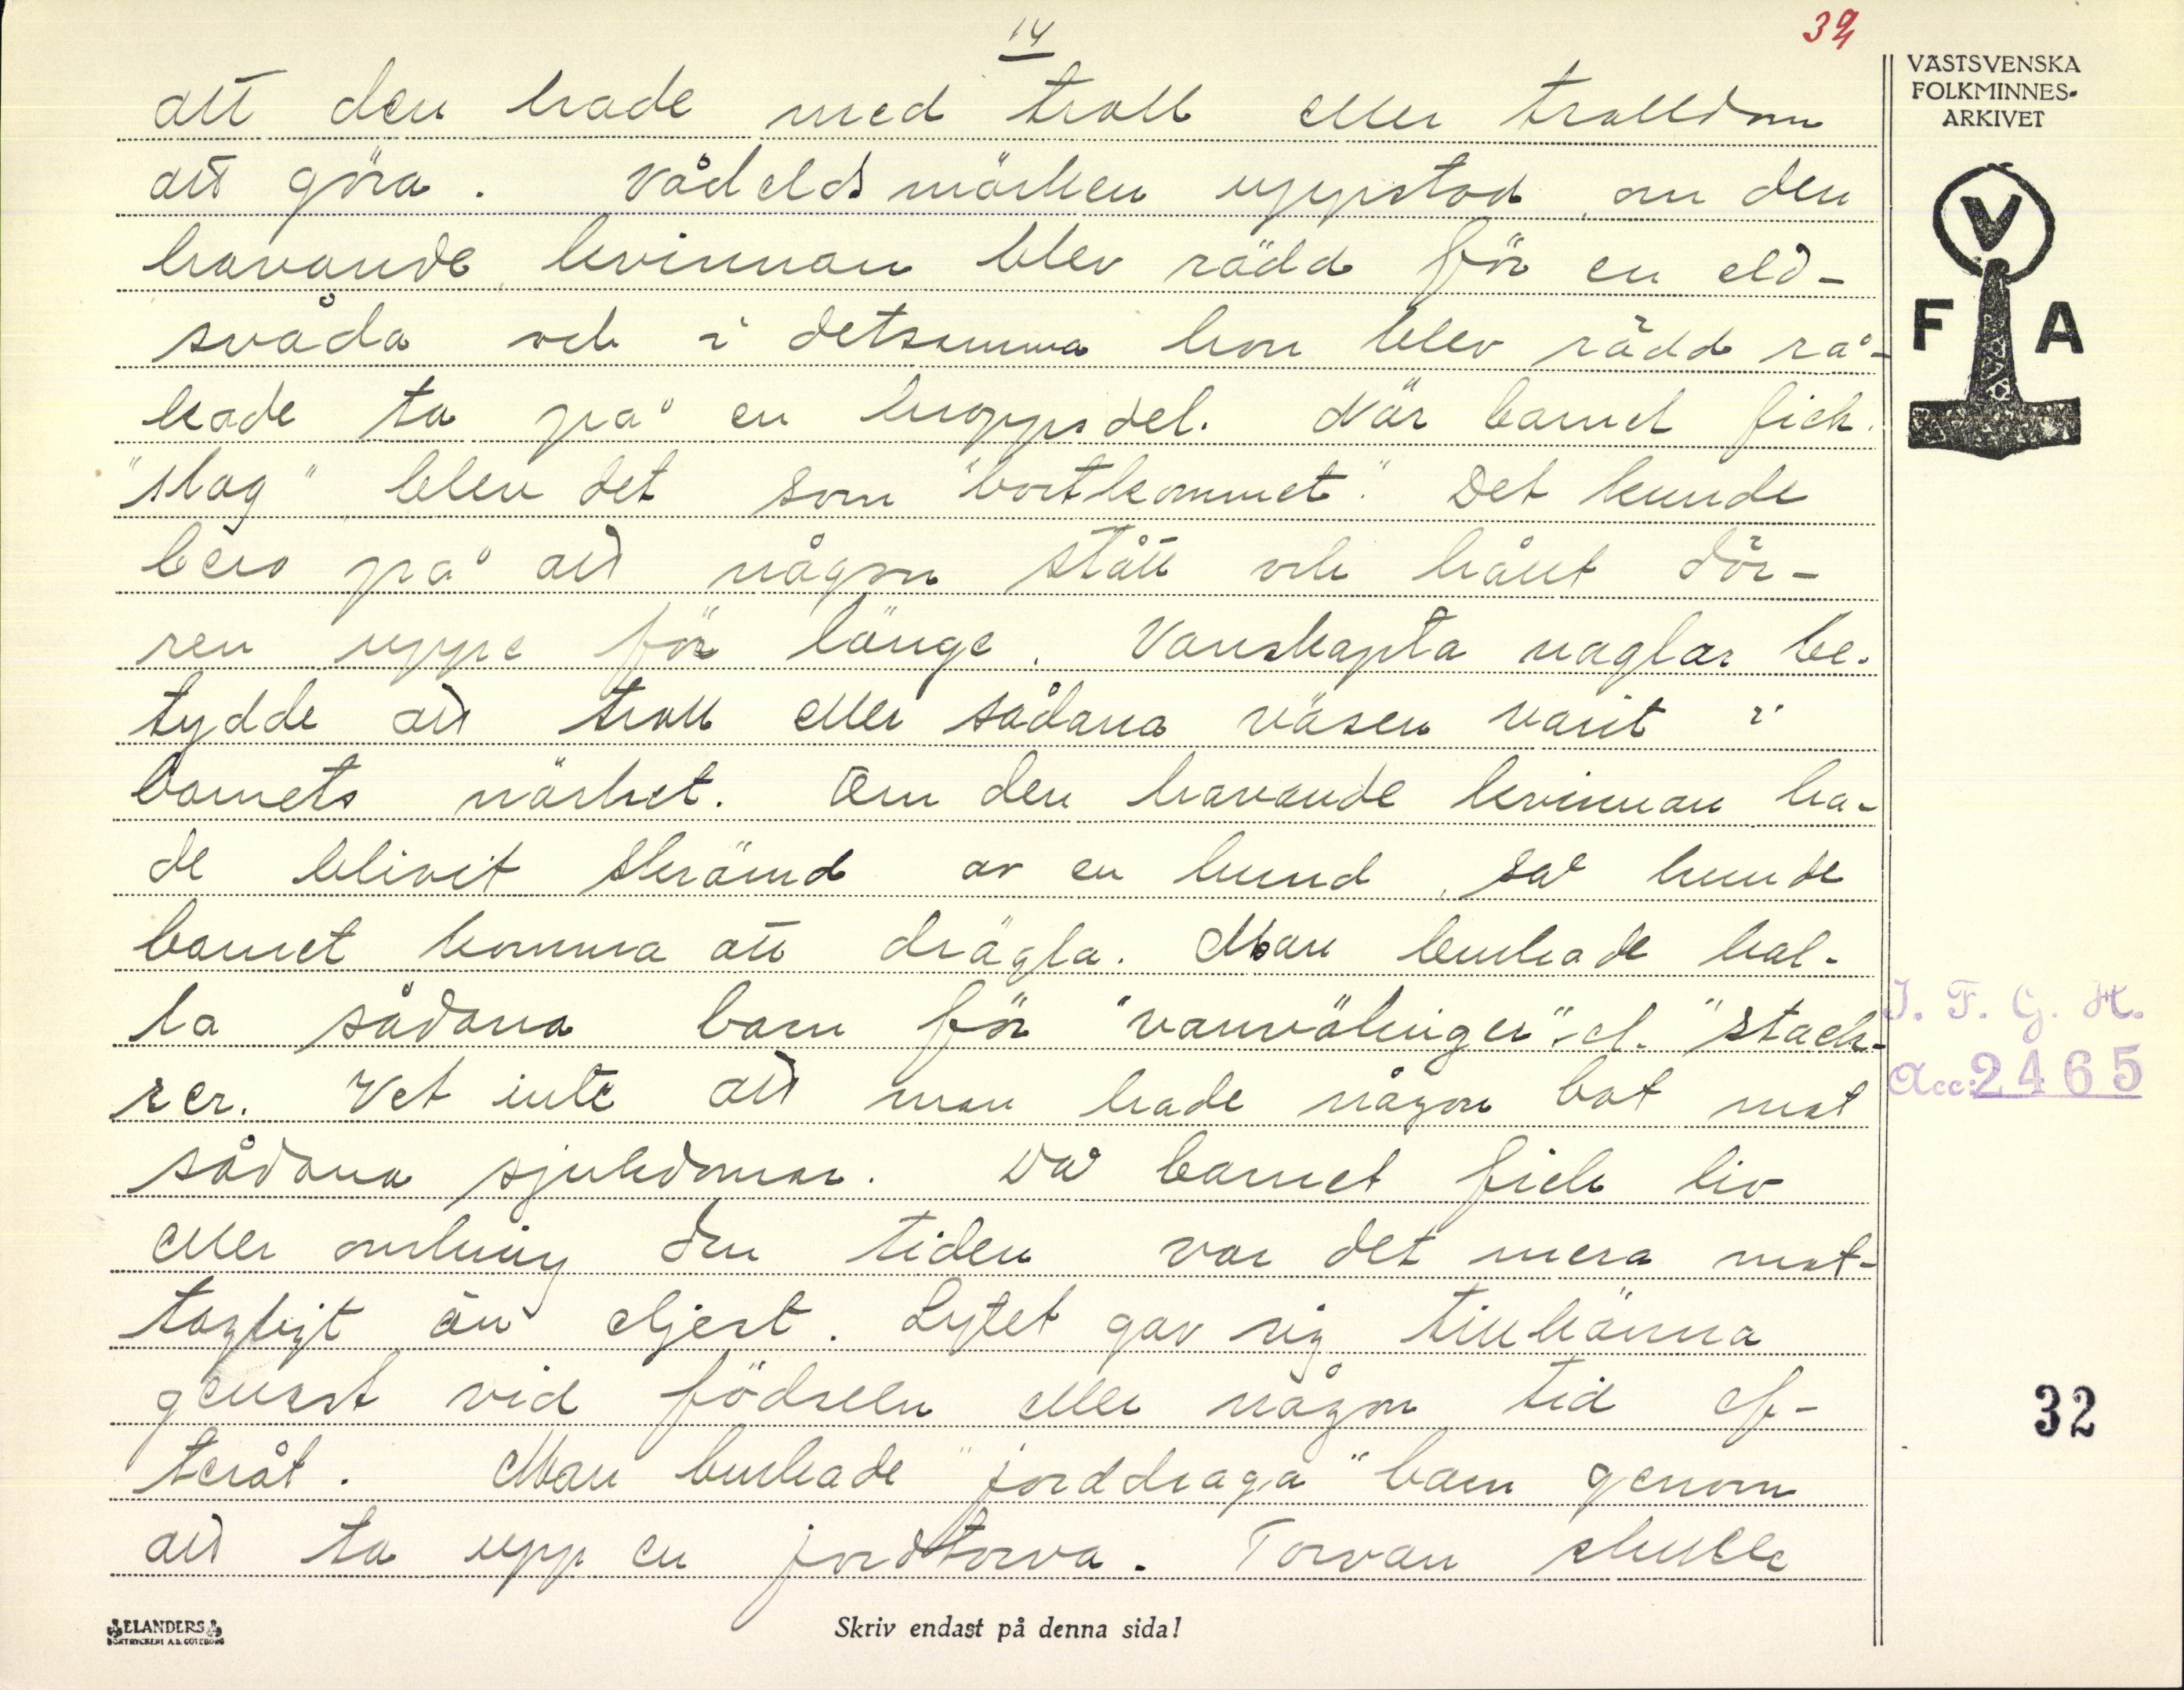 14
32
VÄSTSVENSKA
FOLKMINNES-
ARKIVET
V
F A
att den hade med troll eller trolldom
att göra. Vådeldsmärken uppstod, om den
havande kvinnan blev rädd för en eld-
svåda och i detsamma hon blev rädd rå-
kade ta på en kroppsdel. När barnet fick
"slag" blev det som "bortkommet." Det kunde
bero på att någon stått och hållit dör-
ren uppe för länge. Vanskapta naglar be-
tydde att troll eller sådana väsen varit i
barnets närhet. Om den havande kvinnan ha-
de blivit skrämd av en hund, så kunde
barnet komma att drägla. Man brukade kal-
la sådana barn för "vanvälingar" el. "stack-
rer. Vet inte att man hade någon bot mot
sådana sjukdomar. Då barnet fick liv
eller omkring den tiden var det mera mot-
tagligt än eljest. Lytet gav sig tillkänna
genast vid födseln eller någon tid ef-
teråt. Man brukade "jorddraga" barn genom
att ta upp en jordtorva. Torvan skulle
I. F. G. H.
Acc. 2465
32
ELANDERS
BOKTRYCKERI A.B. GÖTEBORG
Skriv endast på denna sida!